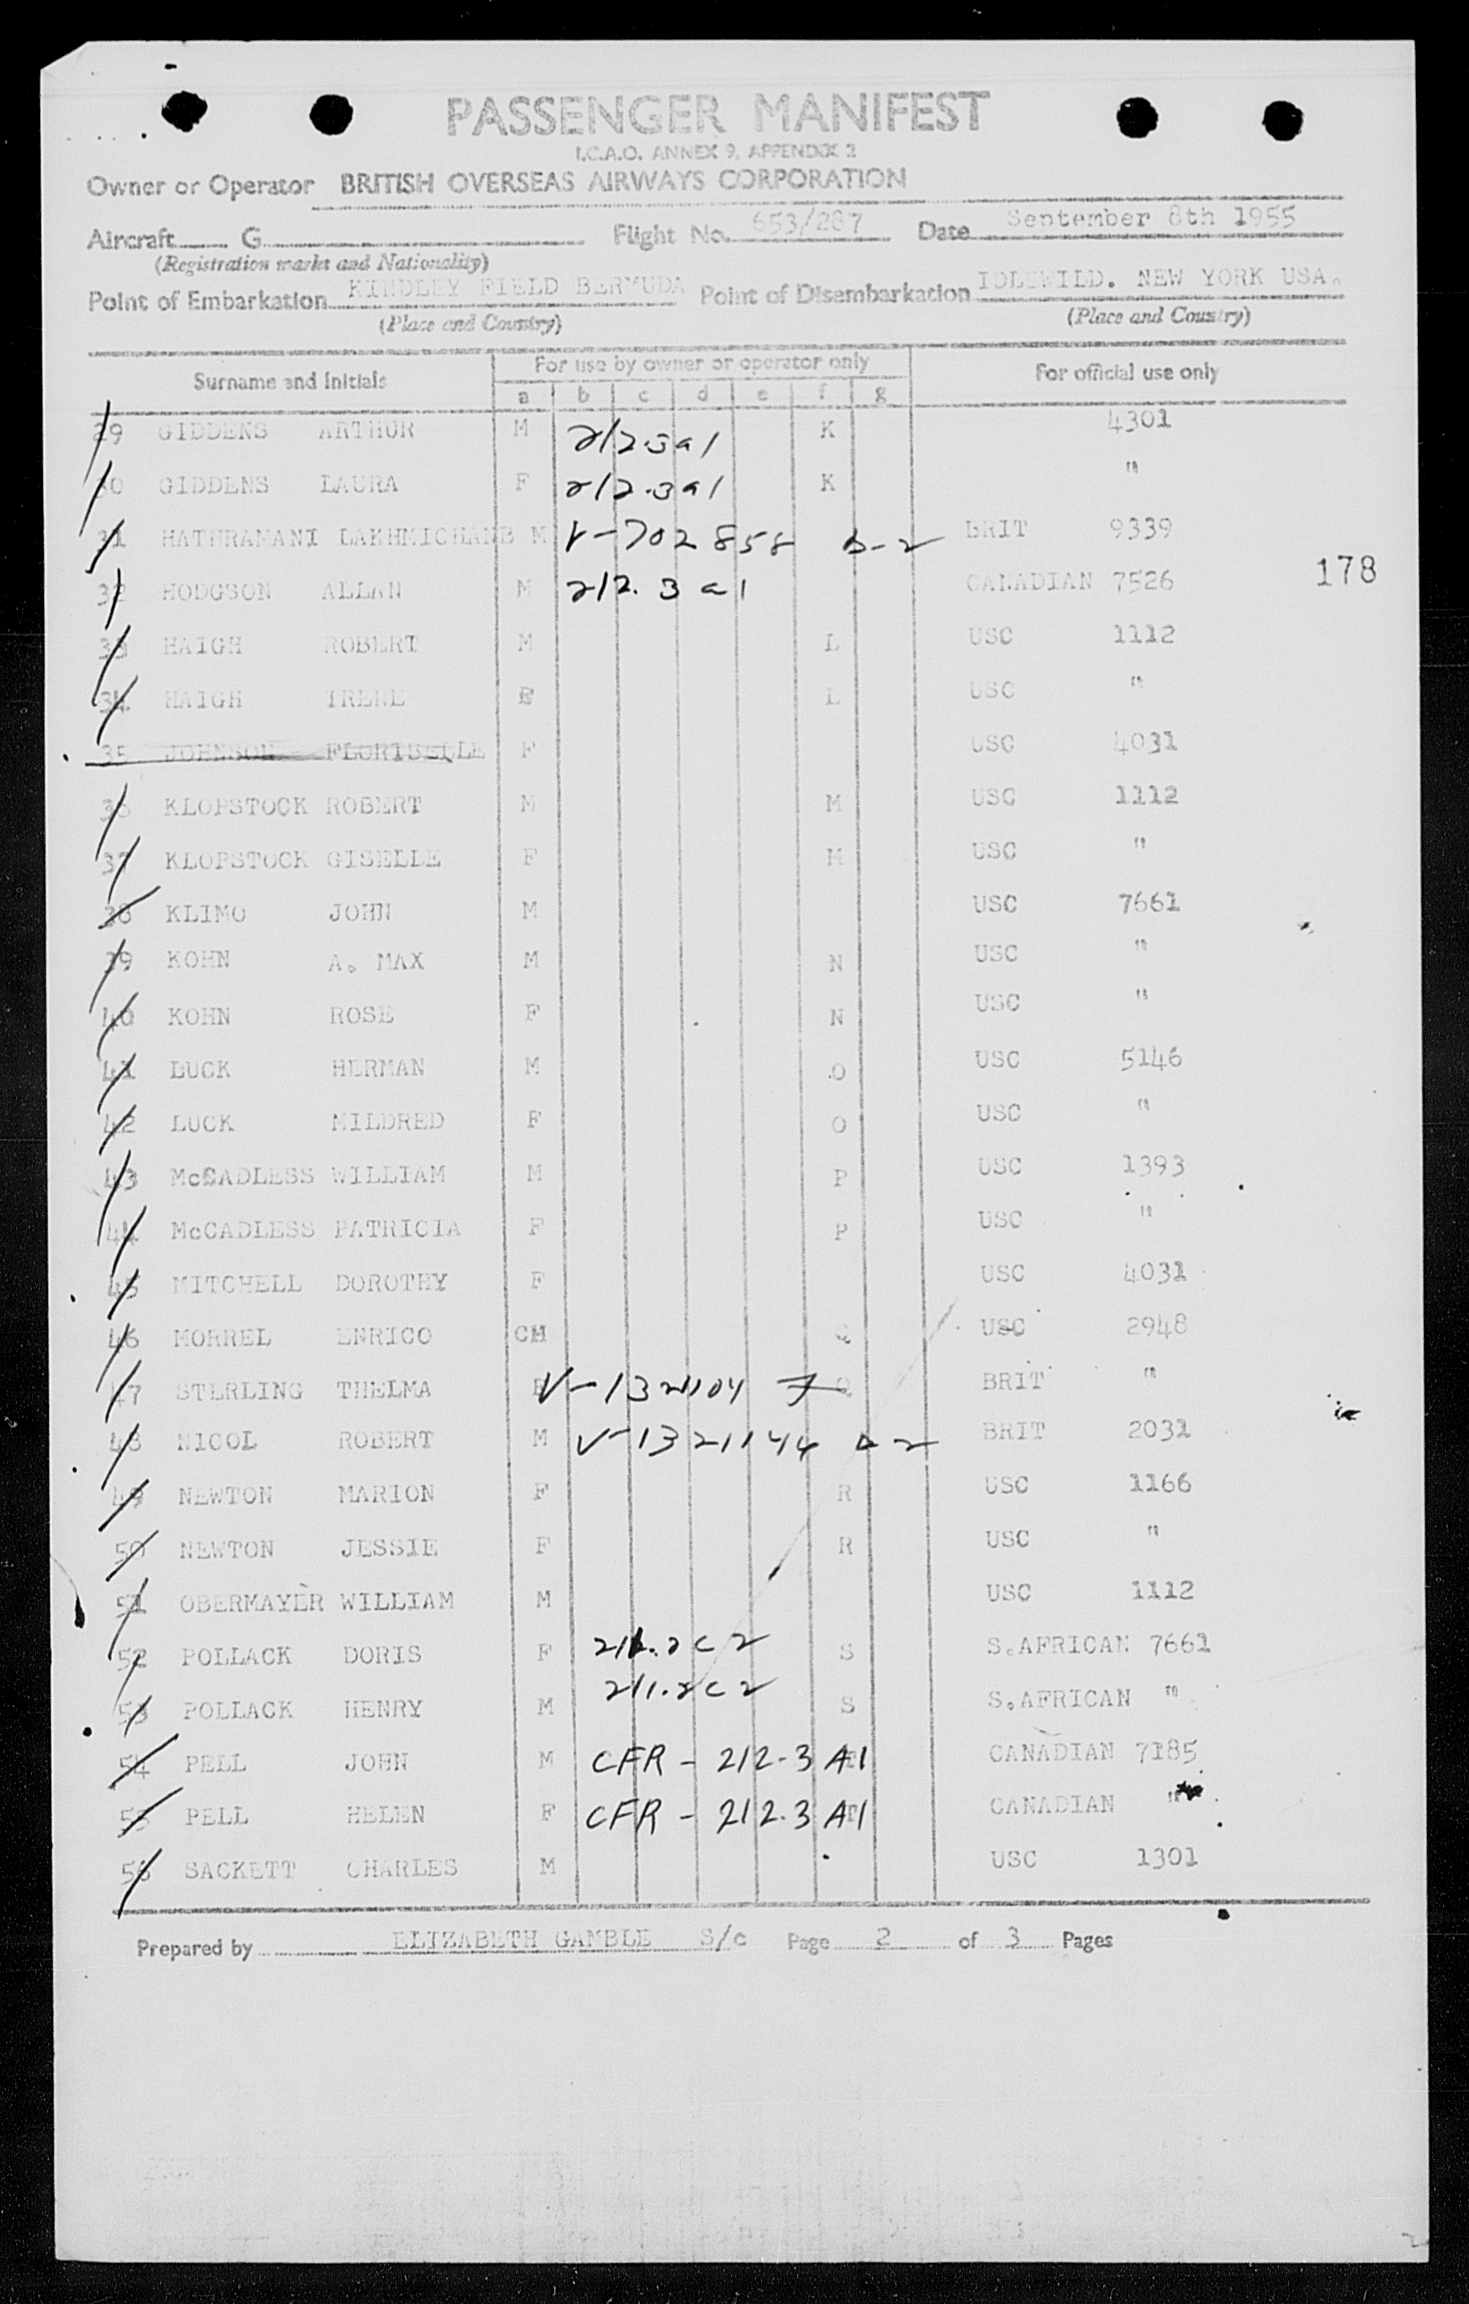 PASSENGER MANIFEST
I.C.A.O. ANNEX 9, APPENDIX 2
Owner or Operator BRITISH OVERSEAS AIRWAYS CORPORATION
Aircraft G Flight No. 653/287 Date September 8th 1955
(Registration marks and Nationality)
Point of Embarkation KINDLEY FIELD BERMUDA Point of Disembarkation IDLEWILD. NEW YORK USA.
(Place and Country) (Place and Country)
Surname and Initials For use by owner or operator only For official use only
a b c d e f g
29 GIDDENS ARTHUR M 212.3a1 K 4301
30 GIDDENS LAURA F 212.3a1 K "
31 HATHRAMANI LAKHMICHAND M V-702858 B-2 BRIT 9339
32 HODGSON ALLAN M 212.3a1 CANADIAN 7526
178
33 HAIGH ROBERT M L USC 1112
34 HAIGH IRENE F L USC "
35 JOHNSON FLORIBELLE F USC 4031
36 KLOPSTOCK ROBERT M M USC 1112
37 KLOPSTOCK GISELLE F M USC "
38 KLIMO JOHN M USC 7661
39 KOHN A. MAX M N USC "
40 KOHN ROSE F N USC "
41 LUCK HERMAN M O USC 5146
42 LUCK MILDRED F O USC "
43 McCADLESS WILLIAM M P USC 1393
44 McCADLESS PATRICIA F P USC "
45 MITCHELL DOROTHY F USC 4031
46 MORREL ENRICO CH Q USC 2948
47 STERLING THELMA F Q BRIT "
48 NICOL ROBERT M V-1321144 BRIT 2031
49 NEWTON MARION F R USC 1166
50 NEWTON JESSIE F R USC "
51 OBERMAYER WILLIAM M USC 1112
52 POLLACK DORIS F 211.2C2 S S.AFRICAN 7661
53 POLLACK HENRY M 211.2C2 S S.AFRICAN "
54 PELL JOHN M CFR-212-3 A1 CANADIAN 7185
55 PELL HELEN F CFR-212.3 A1 CANADIAN "
56 SACKETT CHARLES M USC 1301
Prepared by ELIZABETH GAMBLE S/c Page 2 of 3 Pages